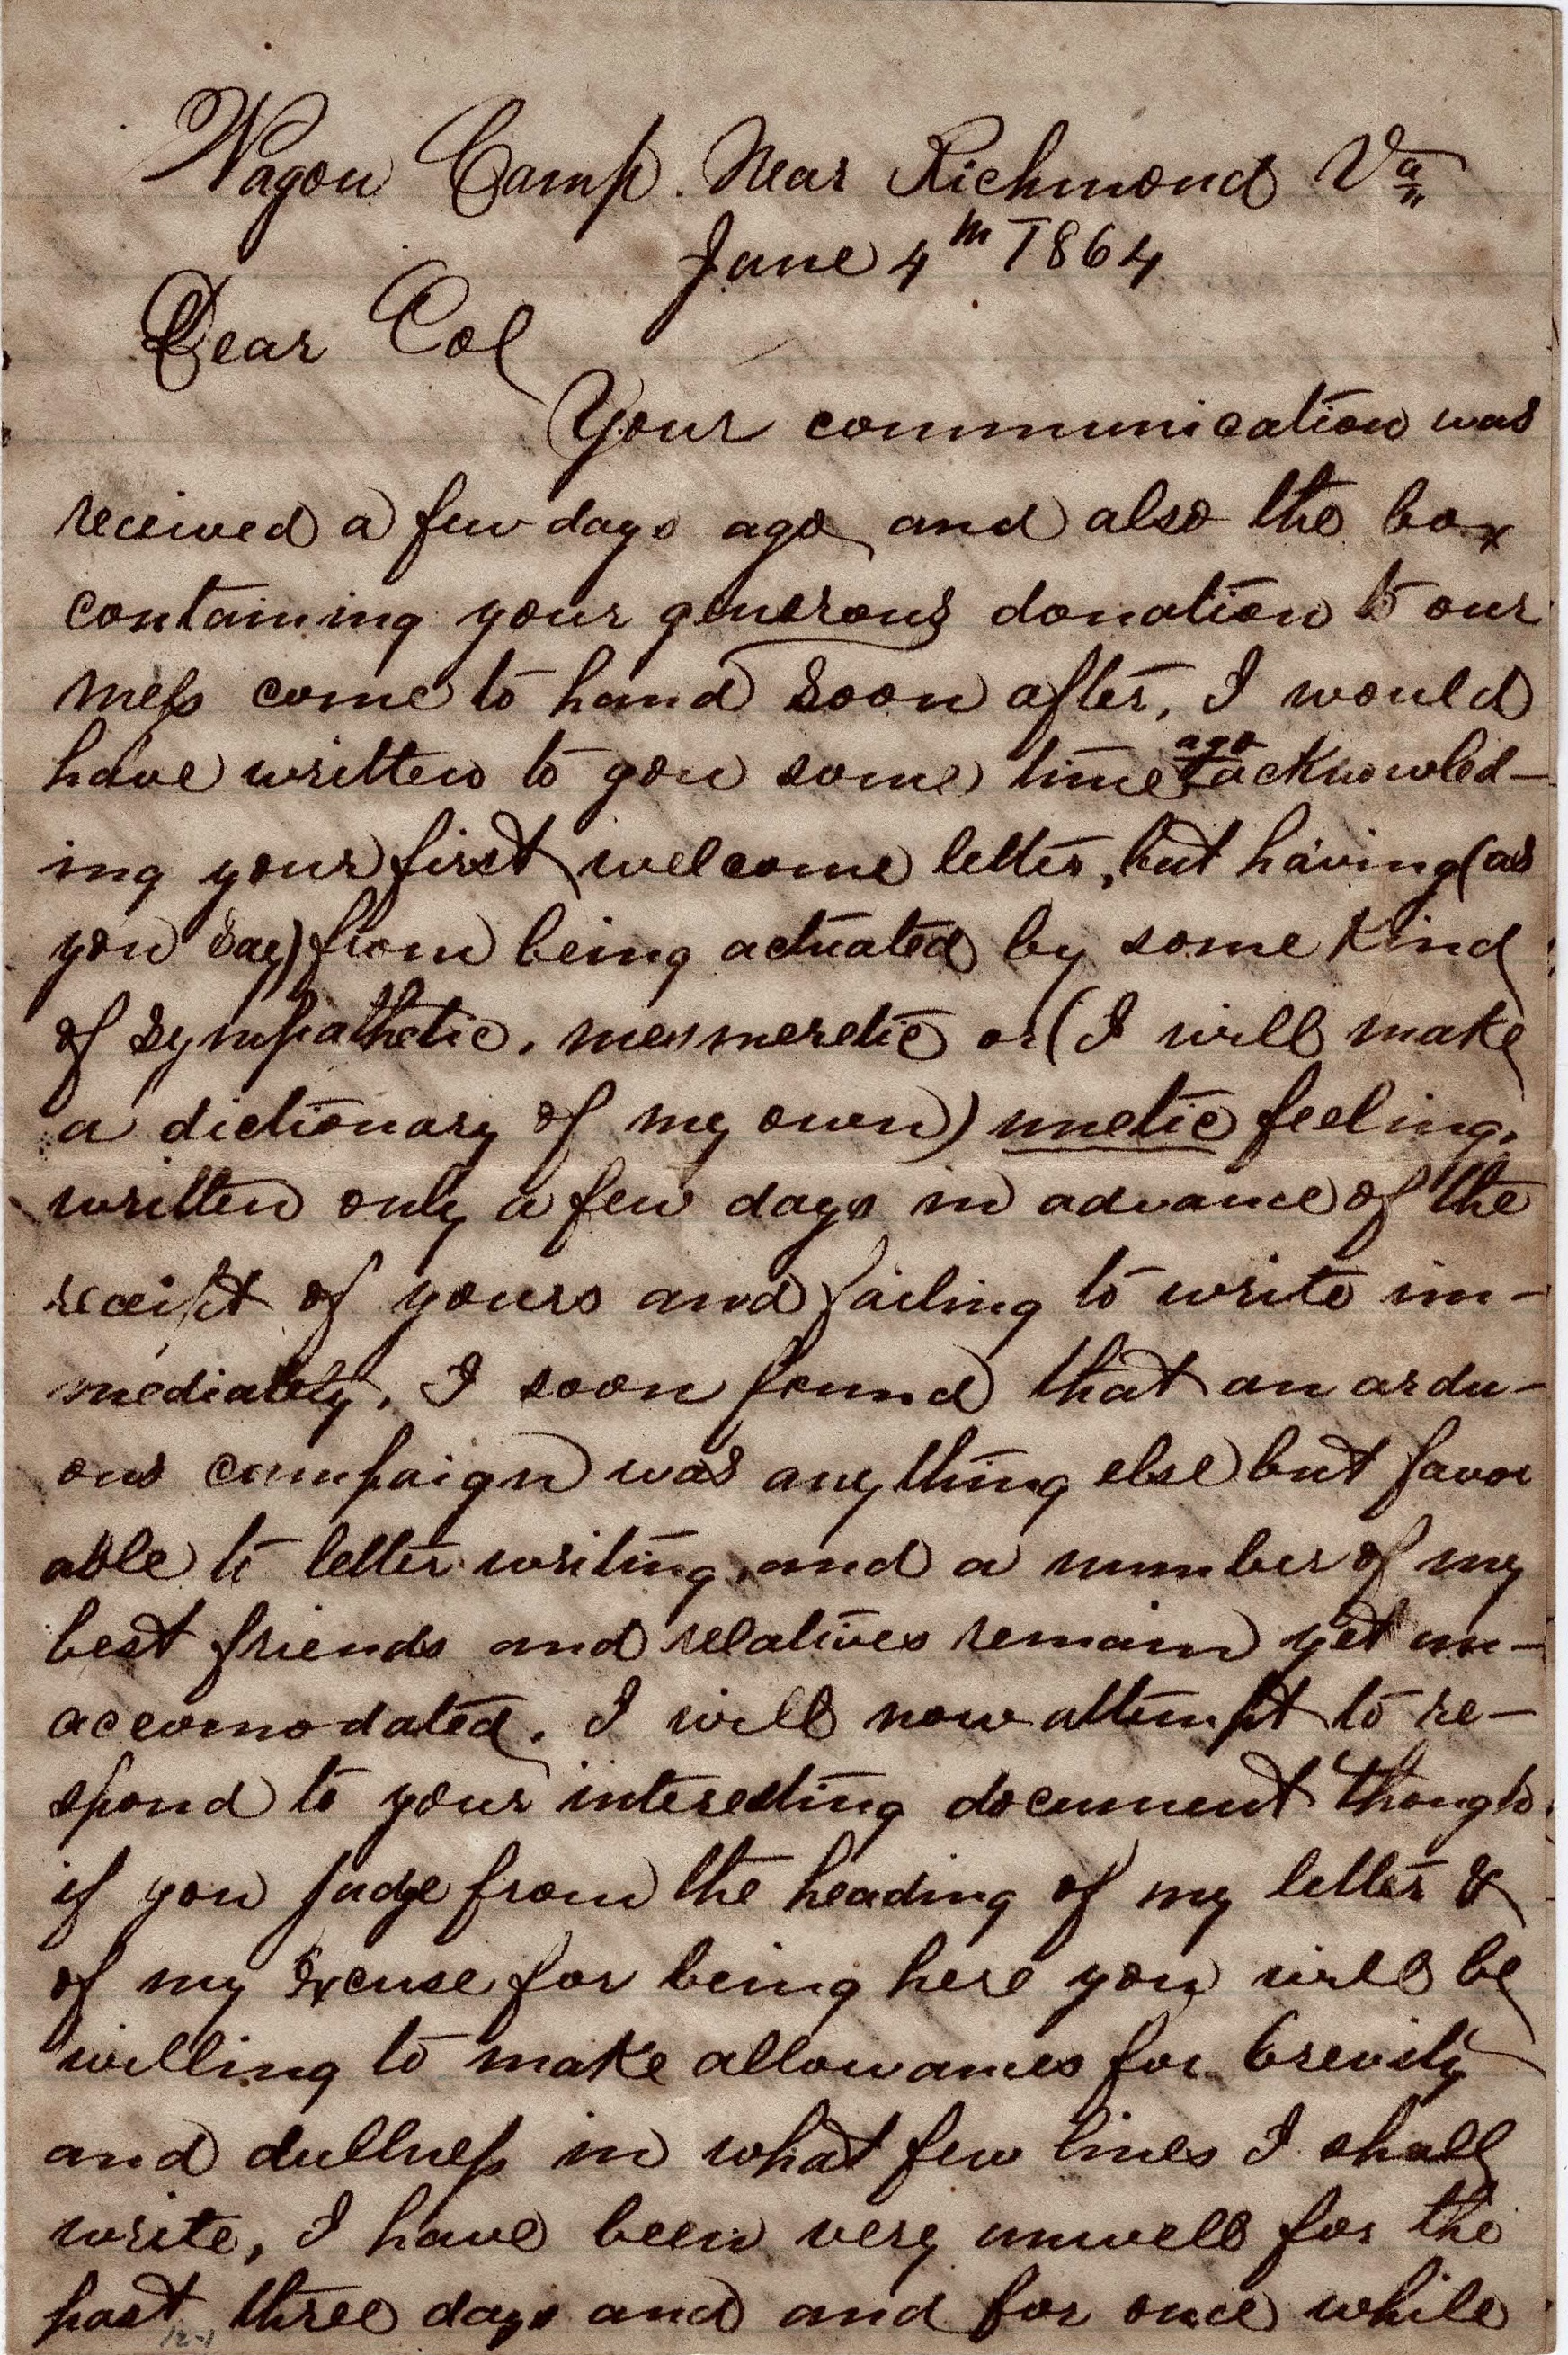 Wagon Camp. Near Richmond Va
June 4th 1864
Dear Col
Your communication was
received a few days ago and also the box
containing your generous donation to our
mess come to hand soon after, I would
have written to you some time ago acknowled-
ing your first welcome letter, but having (as
you say) from being actuated by some kind
of sympathetic, mesmeretic or (I will make
a dictionary of my own) unetic feeling,
written only a few days in advance of the
receipt of yours and failing to write im-
mediately, I soon found that an ardu-
ous campaign was any thing else but favor
able to letter writing, and a number of my
best friends and relatives remain yet un-
accomodated. I will now attempt to re-
spond to your interesting document though
if you judge from the heading of my letter &
of my excuse for being here you will be
willing to make allowances for brevity
and dullness in what few lines I shall
write, I have been very unwell for the
past three days and and for once while
12-1